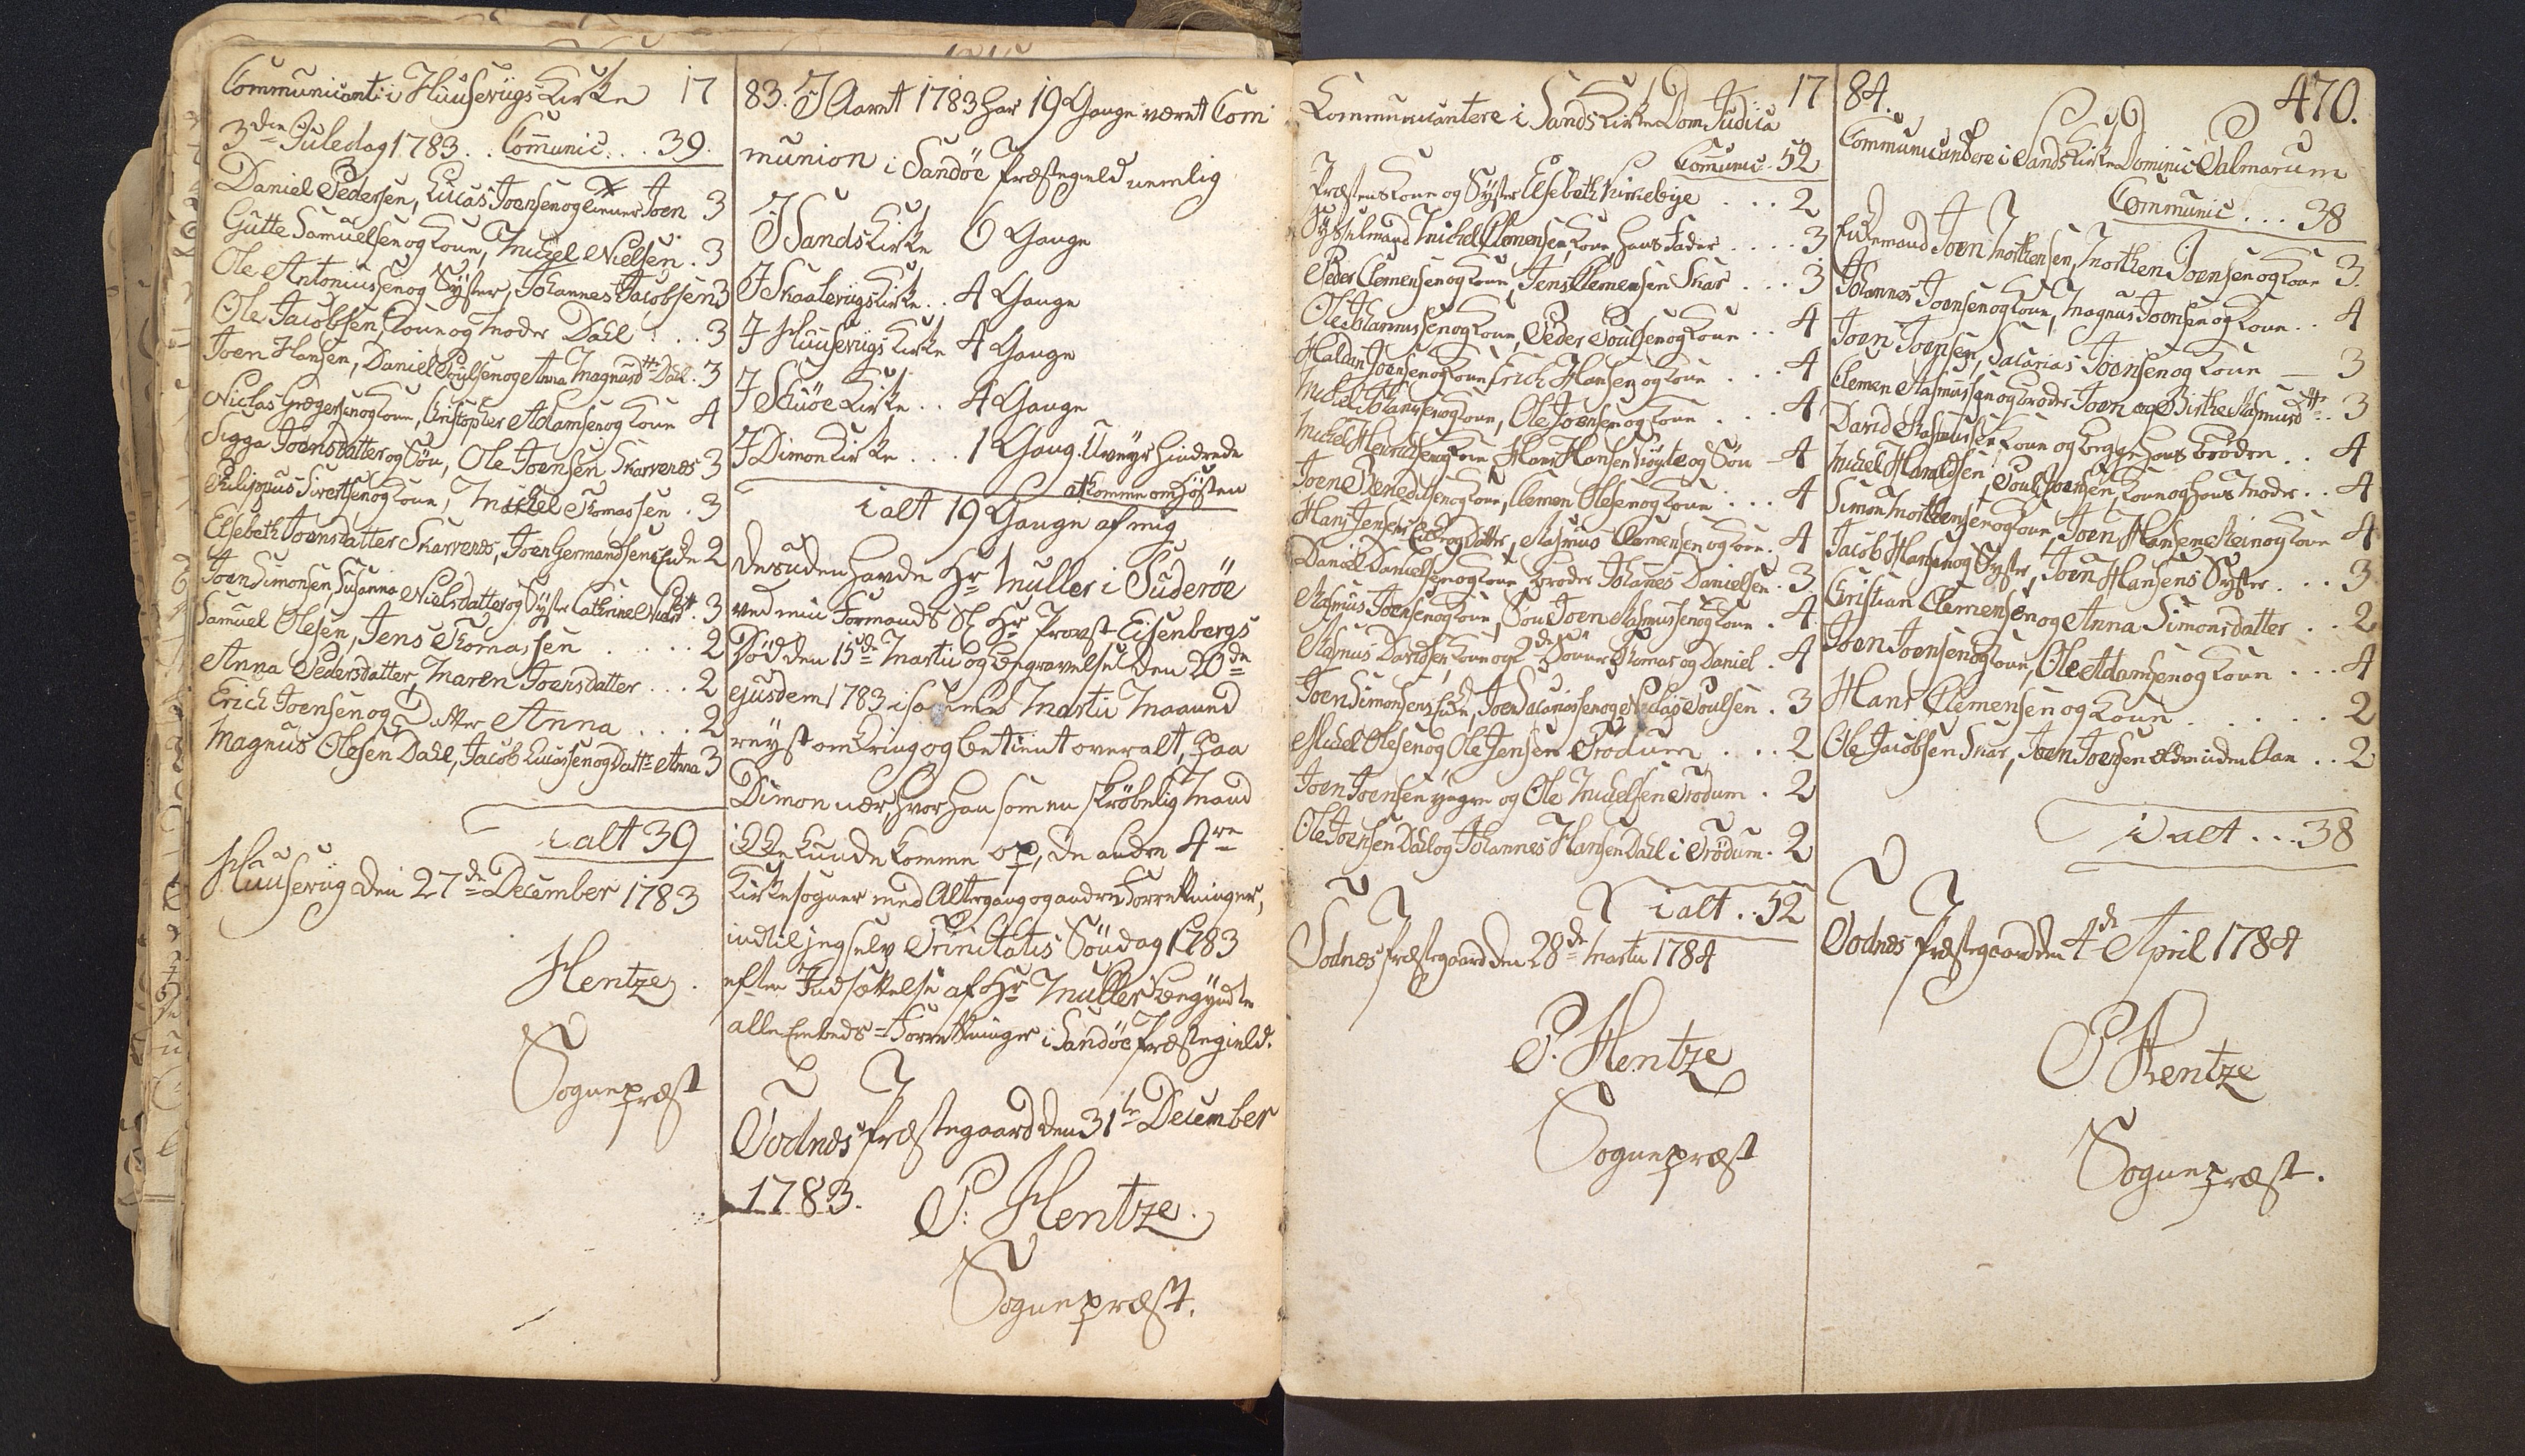 Communicant: i Huuseviigs Kirke 17
3die Juledag 1783 . . Communic . . . 39.
Daniel Pedersen, Lucas Joensen og Joen 3
Gutte Samuelsen og Kone, Michel Nielsen . 3
Ole Antoniussen og Syster, Johannes Jacobsen 3
Ole Jacobsen, Kone og Moder Dahl . . . 3
Joen Hansen, Daniel Poulsen og Anna Magnusdttr Dahl . 3
Niclas Gregersen og Kone, Christopher Adamsen og Kone 4
Sigga Joensdatter og Søn, Ole Joensen Skarvenes 3
Philippus Sivertsen og Kone, Michel Thomassen . 3
Elsebeth Joensdatter Skarvenes, Joen Germandsens Enke 2
Joen Simonsen, Susanna Nielsdatter og Syster Cathrine Nielsd . 3
Samuel Olesen, Jens Thomassen . . . . . 2
Anna Pedersdatter, Maren Joensdatter . . . 2
Erich Joensen og Datter Anna . . . 2
Magnus Olesen Dahl, Jacob Lucassen og Dattr Anna 3
i alt 39
Huuseviig den 27de December 1783
Hentze.
Sognepræst
83. I Aaret 1783 har 19 Gange været Com
munion i Sandöe Præstegield nemlig
I Sands Kirke 6 Gange
I Skaaleviigs Kirke . . 4 Gange
I Huuseviigs Kirke 4 Gange
I Skuöe Kirke . . 4 Gange
I Dimon Kirke . . . 1 Gang. Uveyr hindrede
at komme om Høsten
i alt 19 Gange af mig
desuden havde Hr Müller i Suderöe
ved min Formands Sl. Hr Provst Eisenbergs
Død den 15de Martii og Begravelse den 20de
ejusdem 1783 i samme Martii Maaned
reyst omkring og betient overalt, paa
Dimon nær, hvor han som en skrøbelig Mand
ikke kunde komme op, de andre 4re
Kirkesogner med Altergang og andre Forretninger,
indtil jeg selv Trinitatis Søndag 1783
efter Indsættelse af Hr Müller begyndte
alle Embeds-Forretninger i Sandöe Præstegield.
Todnes Præstegaard den 31te December
1783. P: Hentze.
Sognepræst.
Communicantere i Sands Kirke Dom Judica 17
Communic . 52
Præstens Kone og Syster Elsebeth Kirkebye . . . 2
Sysselmand Michel Clemensen, Kone, hans Fader . . . . 3
Peder Clemensen og Kone, Jens Clemensen Skar . . . 3
Ole Johannissen og Kone, Peder Poulsen og Kone . . 4
Haldan Joensen og Kone, Erich Hansen og Kone . . . 4
Michel Johansen og Kone, Ole Joensen og Kone . . . 4
Michel Henrichsen og Kone, Hans Hansen og Søn 4
Joen Benedictsen og Kone, Clemen Olesen og Kone . . . 4
Hans Jensens Enke og Datter, Rasmus Clemensen og Kone . 4
Daniel Danielsen og Kone, Broder Johannes Danielsen . 3
Rasmus Joensen og Kone, Søn Joen Rasmussen og Kone . 4
Rasmus Davidsen, Kone og 2de Sønner Thomas og Daniel . 4
Joen Simonsens Enke, Joen Zacariassen og Niclas Poulsen . 3
Michel Olesen og Ole Jensen Trödum . . . . 2
Joen Joensen yngre og Ole Michelsen Trödum . 2
Ole Joensen Dahl og Johannes Hansen Dahl i Trödum . 2
i alt . . 52
Todnes Præstegaard den 28de Martii 1784
P. Hentze
Sognepræst
84. 470.
Communicantere i Sands Kirke Dominic Palmarum
Communic . . . 38
Joen Morthensen, Morthen Joensen og Kone 3.
Johannes Joensen og Kone, Magnus Joensen og Kone . . 4
Joen Joensen, Zacarias Joensen og Kone — 3
Clemen Rasmussen og Broder Joen og Birthe Rasmusdttr . . 3
David Rasmussen, Kone og begge hans Brødre . . 4
Michel Haraldsen, Poul Joensen, Kone og hans Moder . . 4
Simon Morthensen og Kone, Joen Hansen Stein og Kone 4
Jacob Hansen og Syster, Joen Hansens Syster . . . 3
Christian Clemensen og Anna Simonsdatter . . 2
Joen Joensen og Kone, Ole Adamsen og Kone . . . 4
Hans Clemensen og Kone . . . . . . 2
Ole Jacobsen Skar, Joen Joensen ældre inden Aae . . 2
i alt . . . 38
Todnes Præstegaard den 4de April 1784
P. Hentze
Sognepræst.